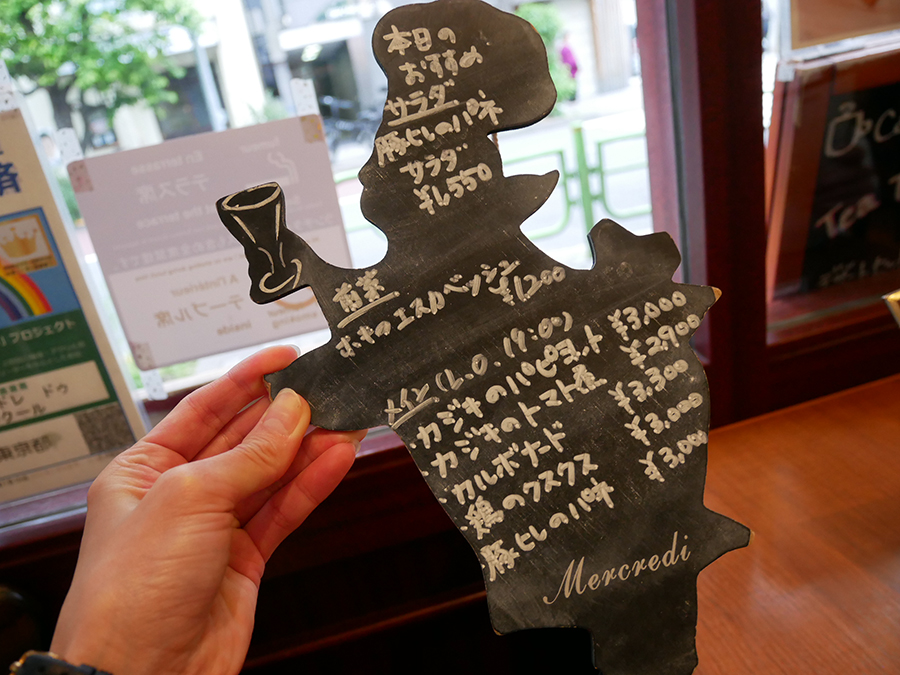 本日の
おすすめ
サラダ
豚ヒレのパネ
サラダ
¥1,550
前菜
ホキのエスカベッシュ
¥1200
メイン(L.O.19:00)
・カジキのパピヨット ¥3,000
・カジキのトマト煮 ¥2900
・カルボナード ¥3,300
・鶏のクスクス ¥3,000
・豚ヒレのパネ ¥3,000
Mercredi
En terrasse
テラス席
at the terrace
À l'intérieur
テーブル席
inside
プロジェクト
東京都
Tea